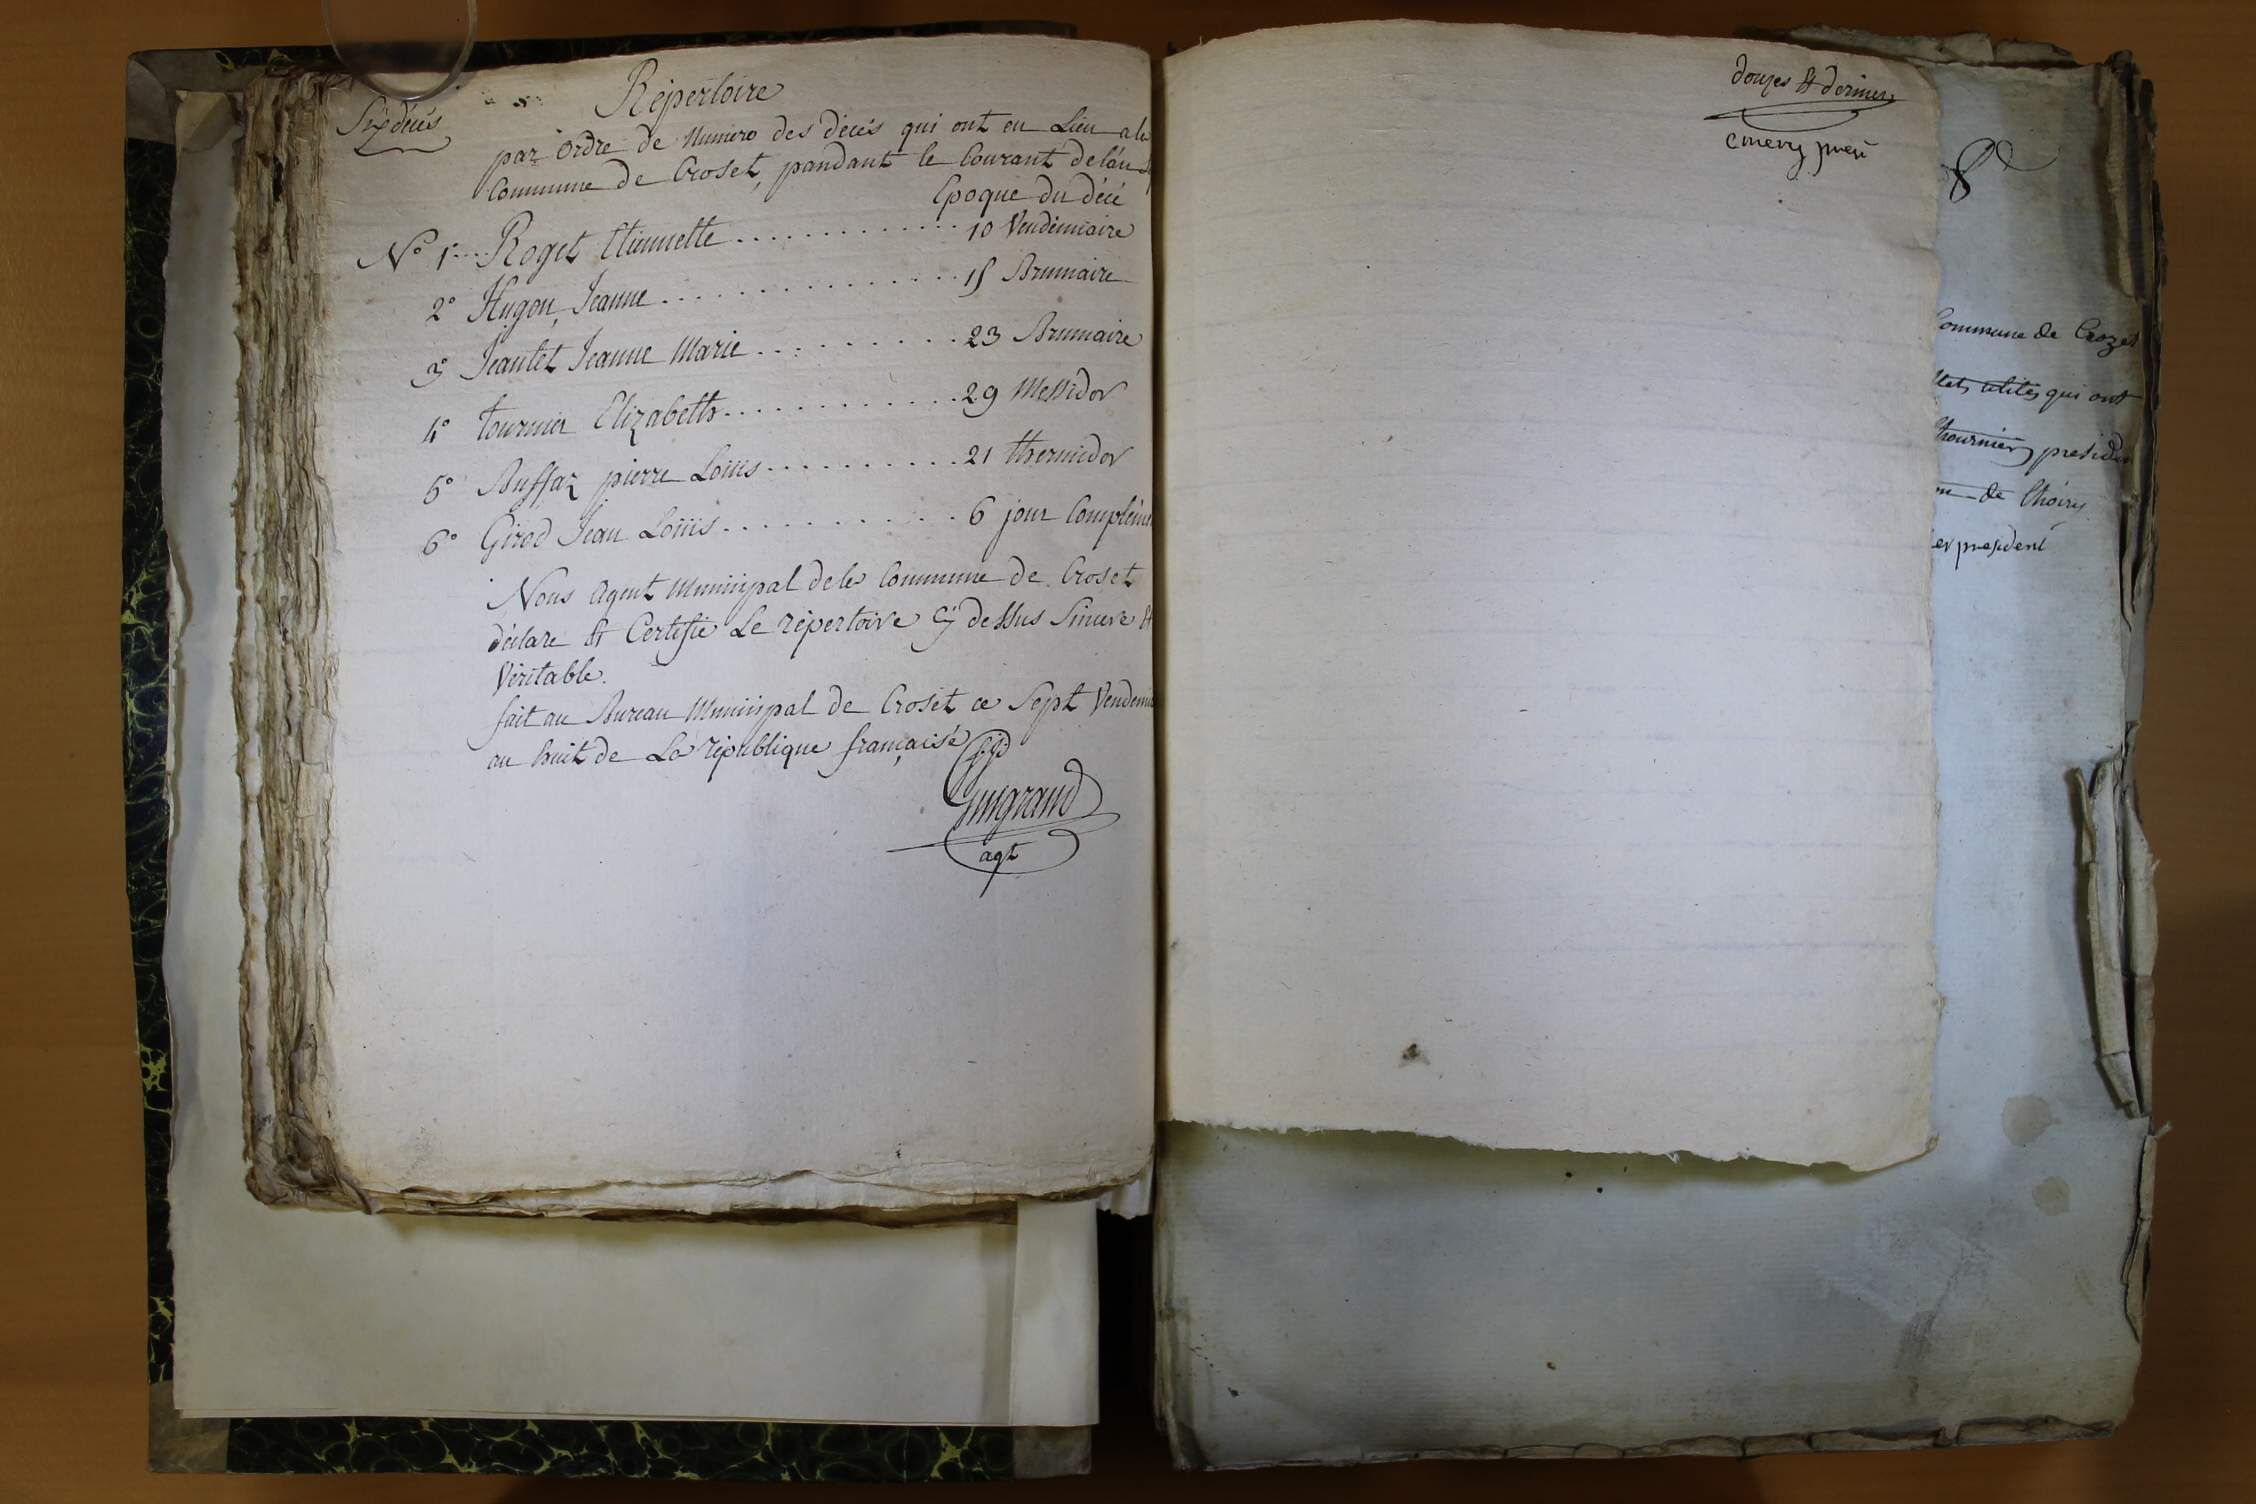 Six décés
Répertoire
par ordre de Numero des décés qui ont eu Lieu a la
Commune de Croset, pandant le Courant de l'an
Epoque du décé
N° 1er Roget Etiennette ............ 10 Vendémiaire
2° Hugon, Jeanne ............ 15 Brumaire
3° Jeantet Jeanne Marie ......... 23 Brumaire
4° tournier Elizabeth ............ 29 Messidor
5° Buffaz pierre Loüis .......... 21 thermidor
6° Girod Jean Loüis ........... 6 jour Complémen
Nous Agent Municipal de la Commune de Croset
déclare et Certifie Le répertoire Cy dessus Sincere et
Veritable.
fait au Bureau Municipal de Croset ce Sept Vendemia
an huit de La république française
Guigrand
agt
douzes et dernier
emery presi
Commune de Crozet
qui ont
thournier presiden
de thoiry
ier president